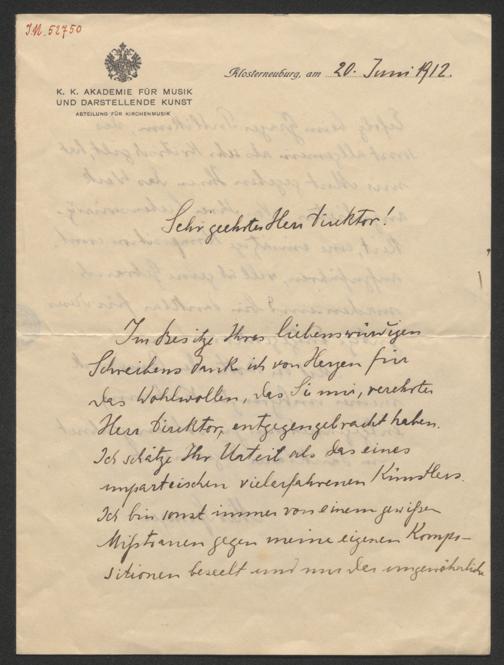 I.N. 52750
K. K. AKADEMIE FÜR MUSIK
UND DARSTELLENDE KUNST
ABTEILUNG FÜR KIRCHENMUSIK
Klosterneuburg, am 20. Juni 1912.
Sehr geehrter Herr Direktor!
Im Besitze Ihres liebenswürdigen
Schreibens dank ich von Herzen für
das Wohlwollen, das Sie mir, verehrter
Herr Direktor, entgegengebracht haben.
Ich schätze Ihr Urteil als das eines
unparteiischen vielerfahrenen Künstlers.
Ich bin sonst immer von einem gewißen
Mißtrauen gegen meine eigenen Kompo-
sitionen beseelt und nur der ungewöhnliche